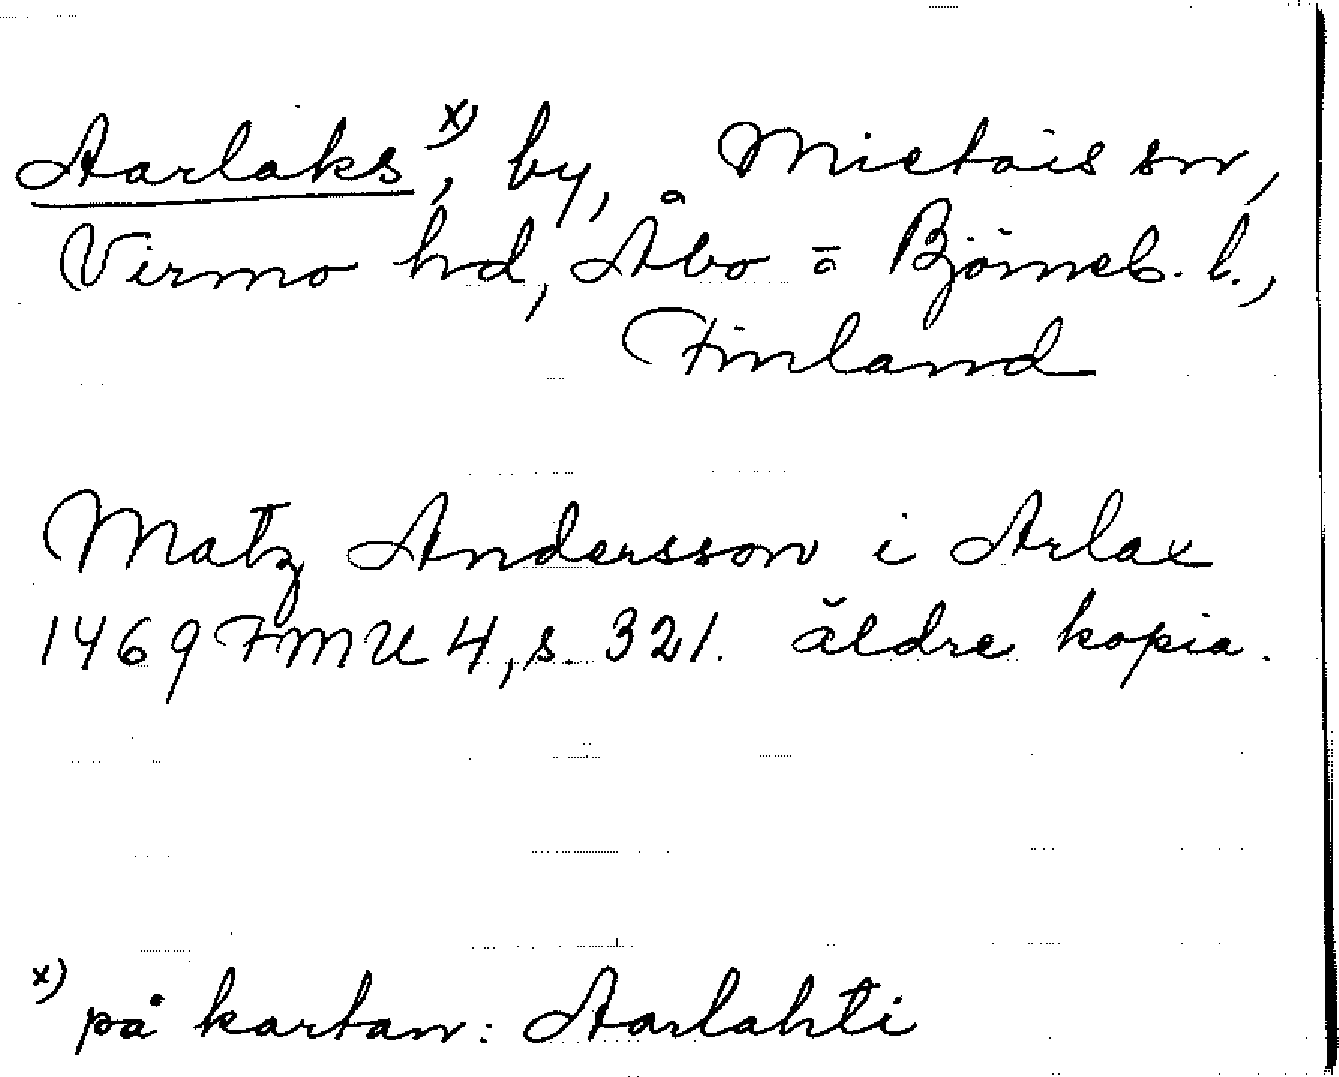 Aarlaks x), by, Mietois sn,
Virmo hd, Åbo = o Björneb. l.,
Finland
Matz Andersson i Arlax
1469 FMU 4, s. 321. äldre kopia.
x) på kartan: Aarlahti